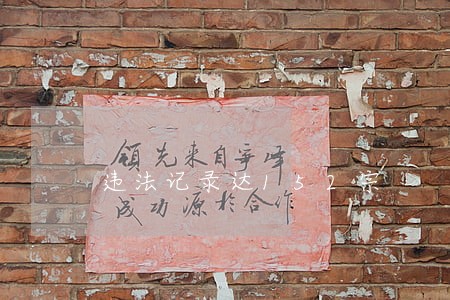 领先来自争峰
违法记录达152宗
成功源於合作